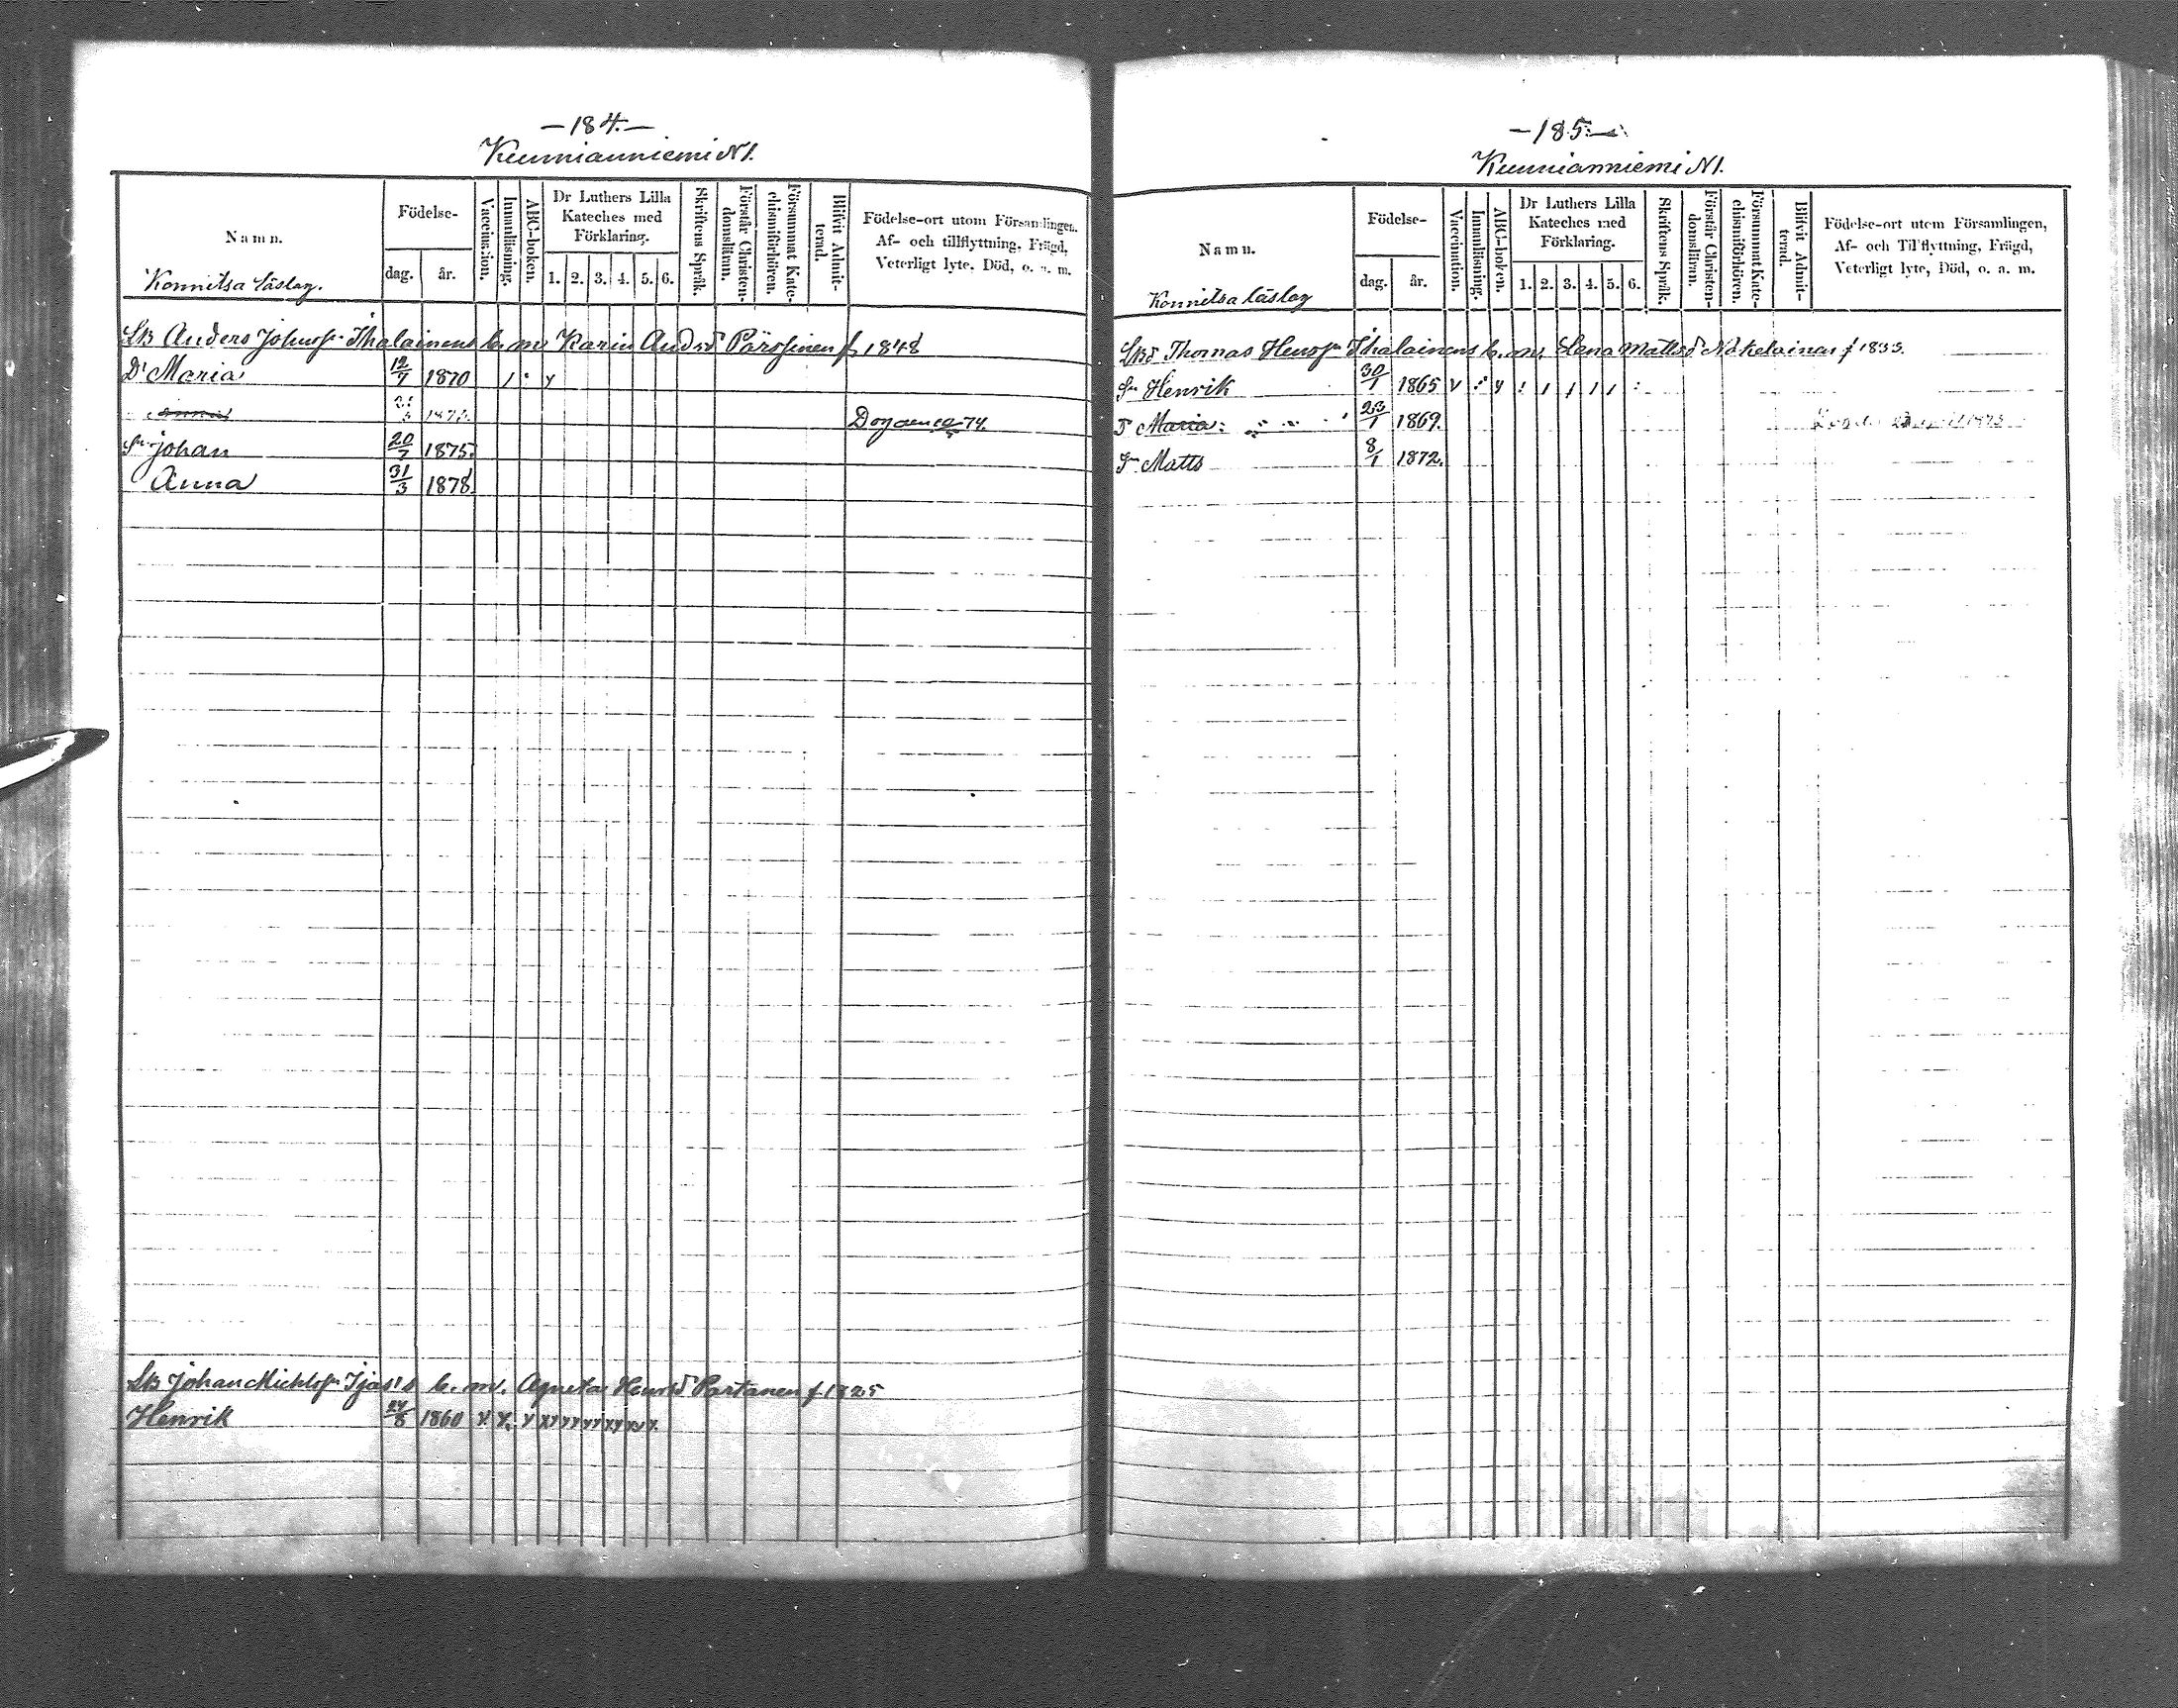 —184.—
Kunnianniemi N1.
Namn.
Födelse-
dag.
år.
Vaccination.
Innanläsning.
ABC-boken.
Dr Luthers Lilla
Kateches med
Förklaring.
1. 2. 3. 4. 5. 6.
Skriftens Språk.
Förstår Christen-
domslitran.
Försummat Kate-
chismiförhören.
Blifvit Admit-
terad.
Födelse-ort utom Församlingen,
Af- och tillflyttning, Frägd,
Veterligt lyte, Död, o. a. m.
Konnitsa läslag.
Anders Johnsso Ihalainens b. m. Karin Andsd Pärssinen f 1848
Dr Maria 12/7 1870 / · y
Anna
Sn Johan 20/7 1875
Anna 31/3 1878
Johan Michlsn b. m. Agneta Henrsd Partanen f. 1825
Henrik 24/8 1860
—185—
Kunnianniemi N1.
Namn.
Födelse-
dag.
år.
Vaccination.
Innanläsning.
ABC-boken.
Dr Luthers Lilla
Kateches med
Förklaring.
1. 2. 3. 4. 5. 6.
Skriftens Språk.
Förstår Christen-
domslitran.
Försummat Kate-
chismiförhören.
Blifvit Admit-
terad.
Födelse-ort utom Församlingen,
Af- och Tillflyttning, Frägd,
Veterligt lyte, Död, o. a. m.
Konnitsa läslag
Thomas Henrssn Ihalainens b. m. Lena Mattsd f 1833.
Sn Henrik 30/1 1865
Maria 23/1 1869.
Sn Matts 8/1 1872.